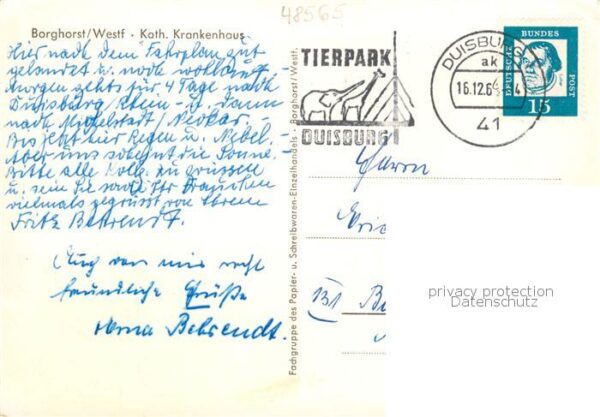 48565
Borghorst/Westf · Kath. Krankenhaus
Hier nach dem Fahrplan gut
gelandet u. noch wohlauf
Morgen gehts für 4 Tage nach
Duisburg Rhein - u. dann
nach Michelstadt / Neckar.-
Bis jetzt hier Regen u. Nebel.
Aber uns scheint die Sonne.
Bitte alle Koll. zu grüssen
u. sein Sie sowie Ihr Frauchen
vielmals gegrüsst von Ihrem
Fritz Behrendt.
Auch von mir recht
freundliche Grüße
Behrendt.
Fachgruppe des Papier- u. Schreibwaren-Einzelhandels · Borghorst/Westf.
TIERPARK
DUISBURG
DUISBURG
ak
16.12.6
41
DEUTSCHE
BUNDES
POST
15
Herrn
privacy protection
Datenschutz